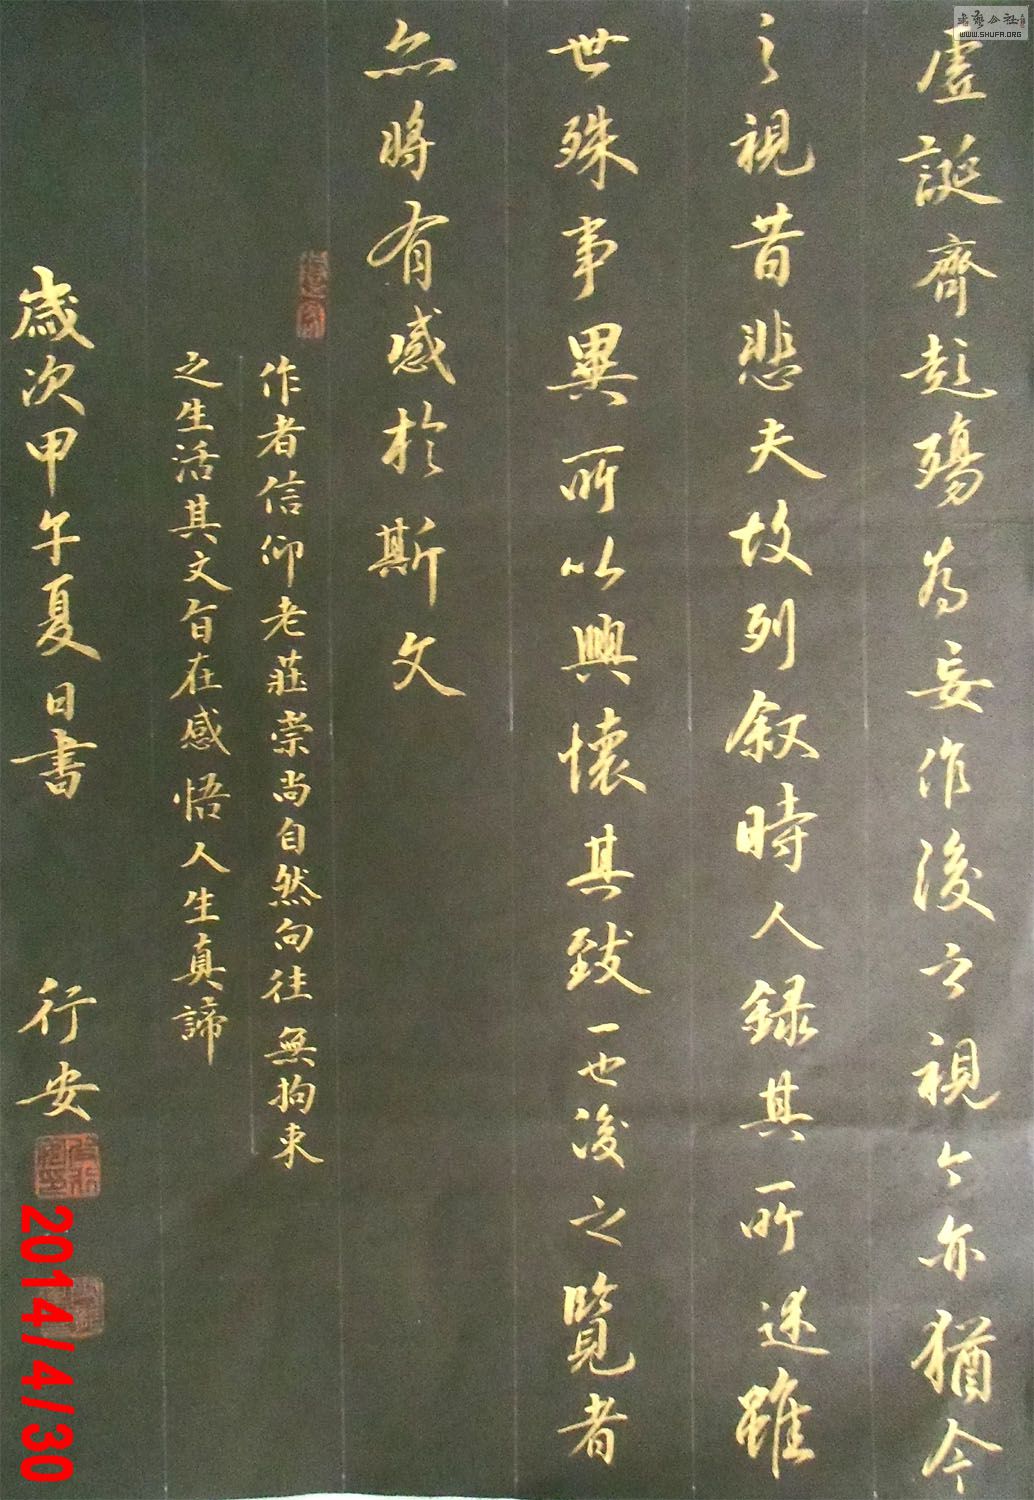 虗誕齊彭殤為妄作後之視今亦猶今
之視昔悲夫故列叙時人録其所述雖
世殊事異所以興懷其致一也後之覽者
亦將有感於斯文
作者信仰老莊崇尚自然向往無拘束
之生活其文旨在感悟人生真諦
歲次甲午夏日書 行安
2014/4/30
书艺公社
WWW.SHUFA.ORG